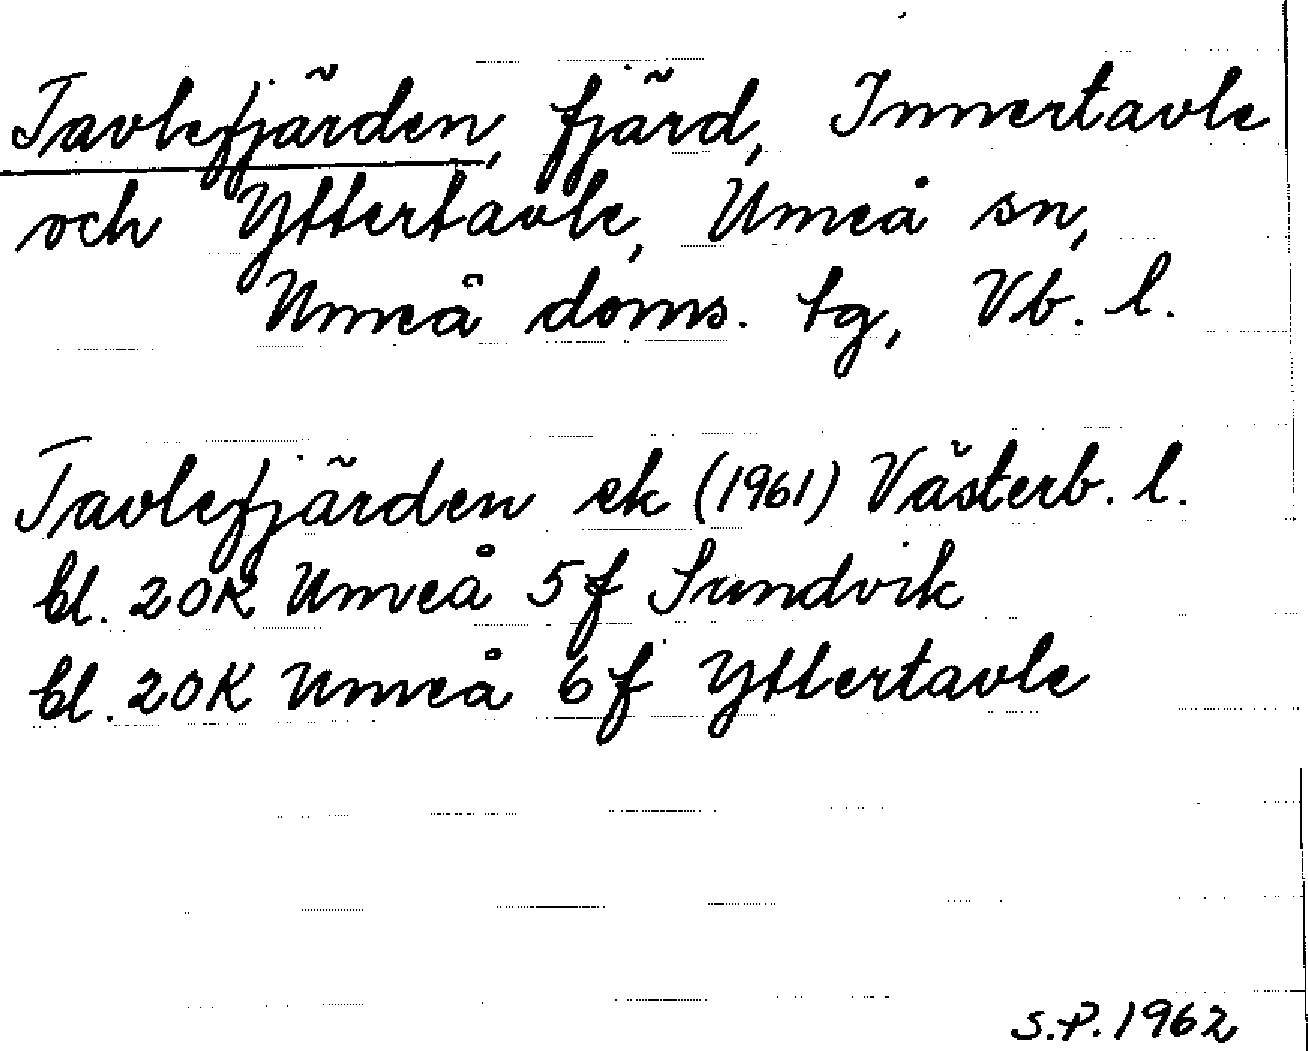 Tavlefjärden, fjärd, Innertavle
och Yttertavle, Umeå sn,
Umeå doms. tg, Vb. l.
Tavlefjärden ek (1961) Västerb. l.
bl. 20K Umeå 5f Sandvik
bl. 20K Umeå 6f Yttertavle
S.P. 1962